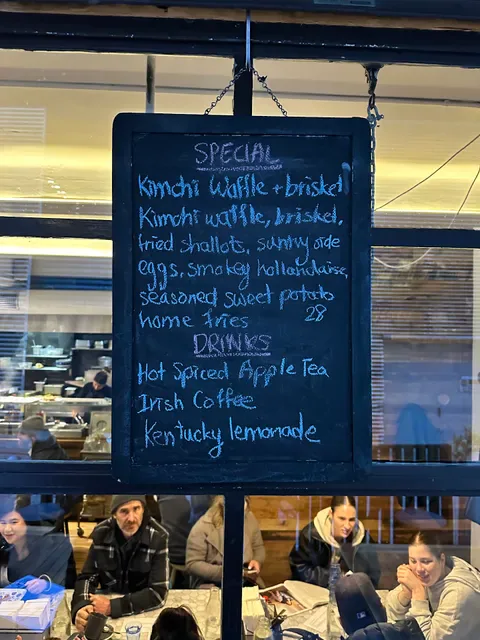 SPECIAL
Kimchi Waffle + brisket
Kimchi waffle, brisket,
fried shallots, sunny side
eggs, smokey hollandaise,
seasoned sweet potato
home fries 28
DRINKS
Hot Spiced Apple Tea
Irish Coffee
Kentucky lemonade